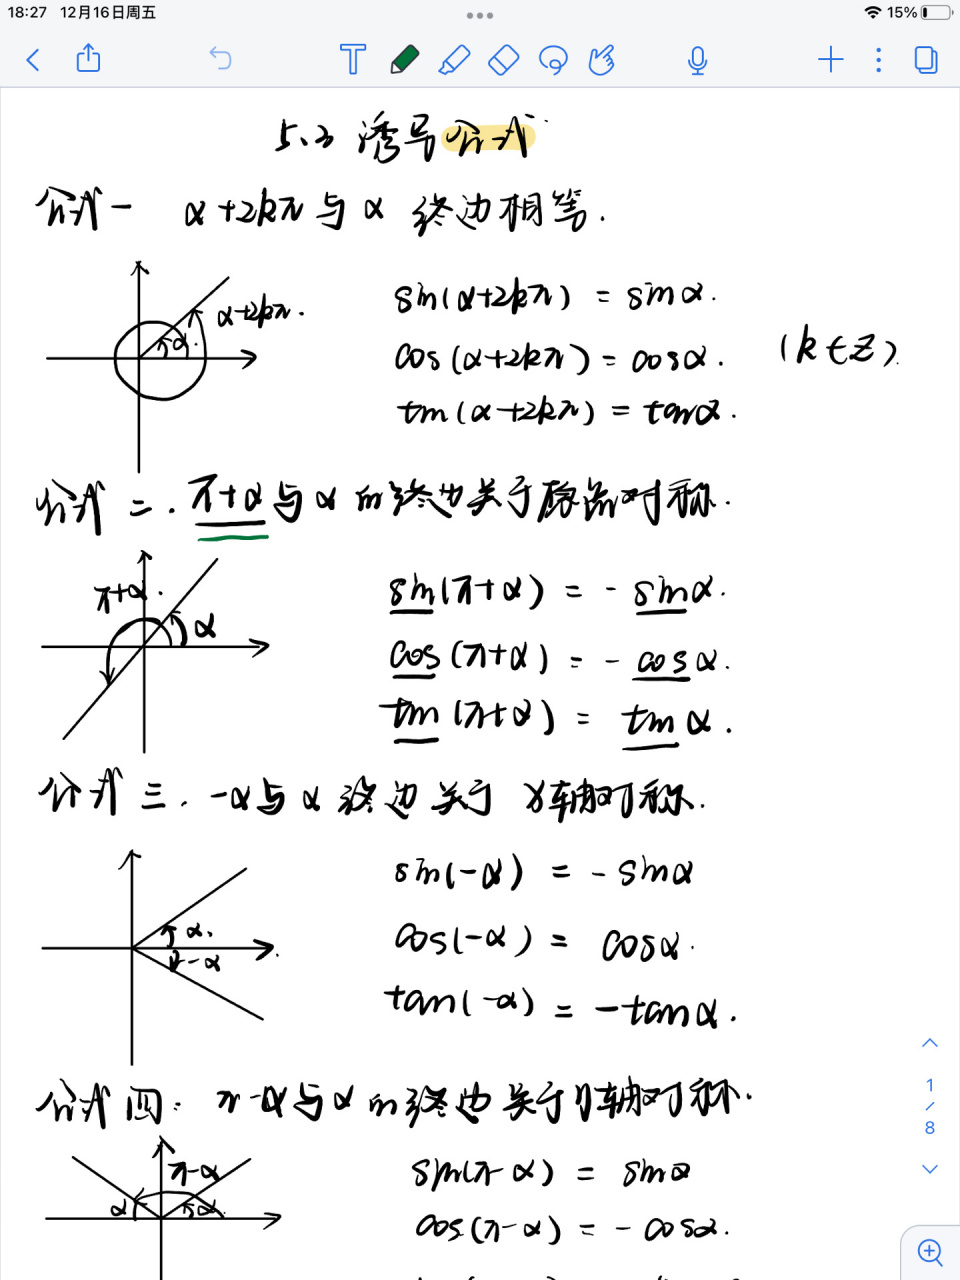 18:27 12月16日周五 15%
5.3 诱导公式
公式一 α+2kπ与α 终边相等.
α+2kπ.
α.
sin(α+2kπ) = sinα.
cos(α+2kπ) = cosα. (k∈Z)
tan(α+2kπ) = tanα.
公式二. π+α与α的终边关于原点对称.
π+α.
α
sin(π+α) = - sinα.
cos(π+α) = - cosα.
tan(π+α) = tanα.
公式三. -α与α终边关于x轴对称.
α.
-α
sin(-α) = - sinα
cos(-α) = cosα.
tan(-α) = -tanα.
公式四: π-α与α的终边关于y轴对称.
π-α
α α
sin(π-α) = sinα
cos(π-α) = - cosα.
1
/
8